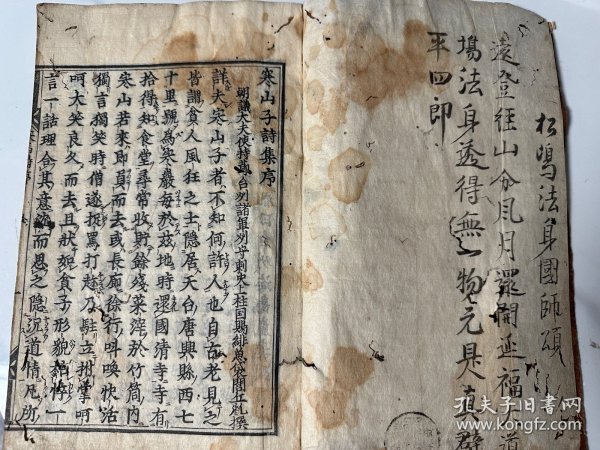 松嶋法身國師頌
遠登径山分風月還開延福道
場法身透得無一物元是真壁
平四郎
寒山子詩集序
朝議大夫使持節台州諸軍州守刺史上柱國賜緋魚袋閭丘胤撰
詳夫寒山子者不知何許人也自古老見之
皆謂貧人風狂之士隱居天台唐興縣西七
十里號為寒巖每於茲地時還國清寺寺有
拾得知食堂尋常收貯餘殘菜滓於竹筒內
寒山若來即負而去或長廊徐行叫喚快活
獨言獨笑時僧遂捉罵打趁乃駐立拊掌呵
呵大笑良久而去且狀如貧子形貌枯悴一
言一話理合其意沉而思之隱沉道情凡所
孔夫子旧书网
kongfz.com